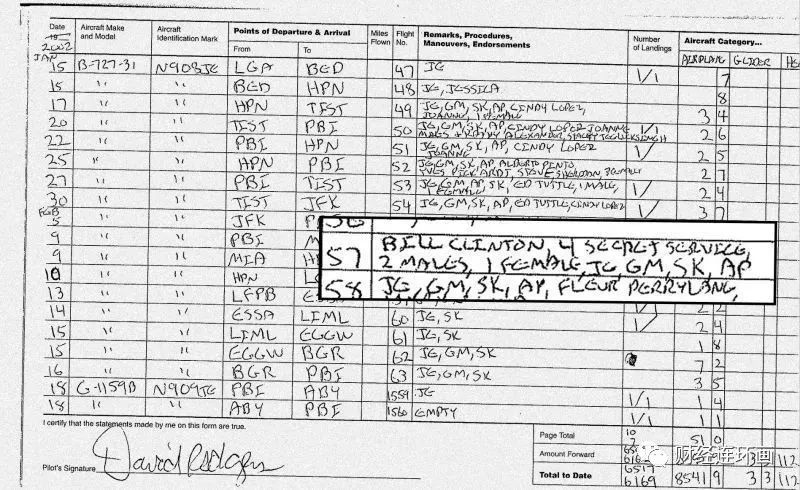 Date Aircraft Make and Model Aircraft Identification Mark Points of Departure & Arrival Miles Flown Flight No. Remarks, Procedures, Maneuvers, Endorsements Number of Landings Aircraft Category...
19 2002 From To AIRPLANE GLIDER
JAN
15 B-727-31 N908JE LGA BED 47 JE 1/1 7
15 " BED HPN 48 JE, JESSICA 8
17 " HPN TIST 49 JE, GM, SK, AP, CINDY LOPEZ, JOANNE, 1 FEMALE 3 4
20 " TIST PBI 50 JE, GM, SK, AP, CINDY LOPEZ, JOANNE 1/1 2 6
22 " PBI HPN 51 JE, GM, SK, AP, CINDY LOPEZ JOANNE 1/ 2 5
25 " HPN PBI 52 JE, GM, SK, AP, ALBERTO PINTO 2 7
27 " PBI TIST 53 JE, GM, AP, SK, ED TUTTLE, 1 MALE, 1 FEMALE 1/ 2 4
30 " TIST JFK 54 JE, GM, SK, AP, ED TUTTLE, CINDY LOPEZ 1/ 3 7
FEB
5 " JFK
9 " PBI
9 " MIA
10 " HPN
57 BILL CLINTON, 4 SECRET SERVICE,
2 MALES, 1 FEMALE, JE, GM, SK, AP
58 JE, GM, SK, AP, FLEUR PERRYLANG,
13 " LFPB 2 2
14 " ESSA LIML 60 JE, SK 1/ 2 4
15 " LIML EGGW 61 JE, SK 1 8
15 " EGGW BGR 62 JE, GM, SK 7 2
16 " BGR PBI 63 JE, GM, SK 3 5
18 G-1159B N909JE PBI ABY 1559 JE 1/1 1 4
18 " ABY PBI 1560 EMPTY 1/1 1 1
I certify that the statements made by me on this form are true.
Pilot's Signature David Rodgers
Page Total 51 0
Amount Forward
Total to Date 6517 6169 8541 9 3 3 112
财经连环画